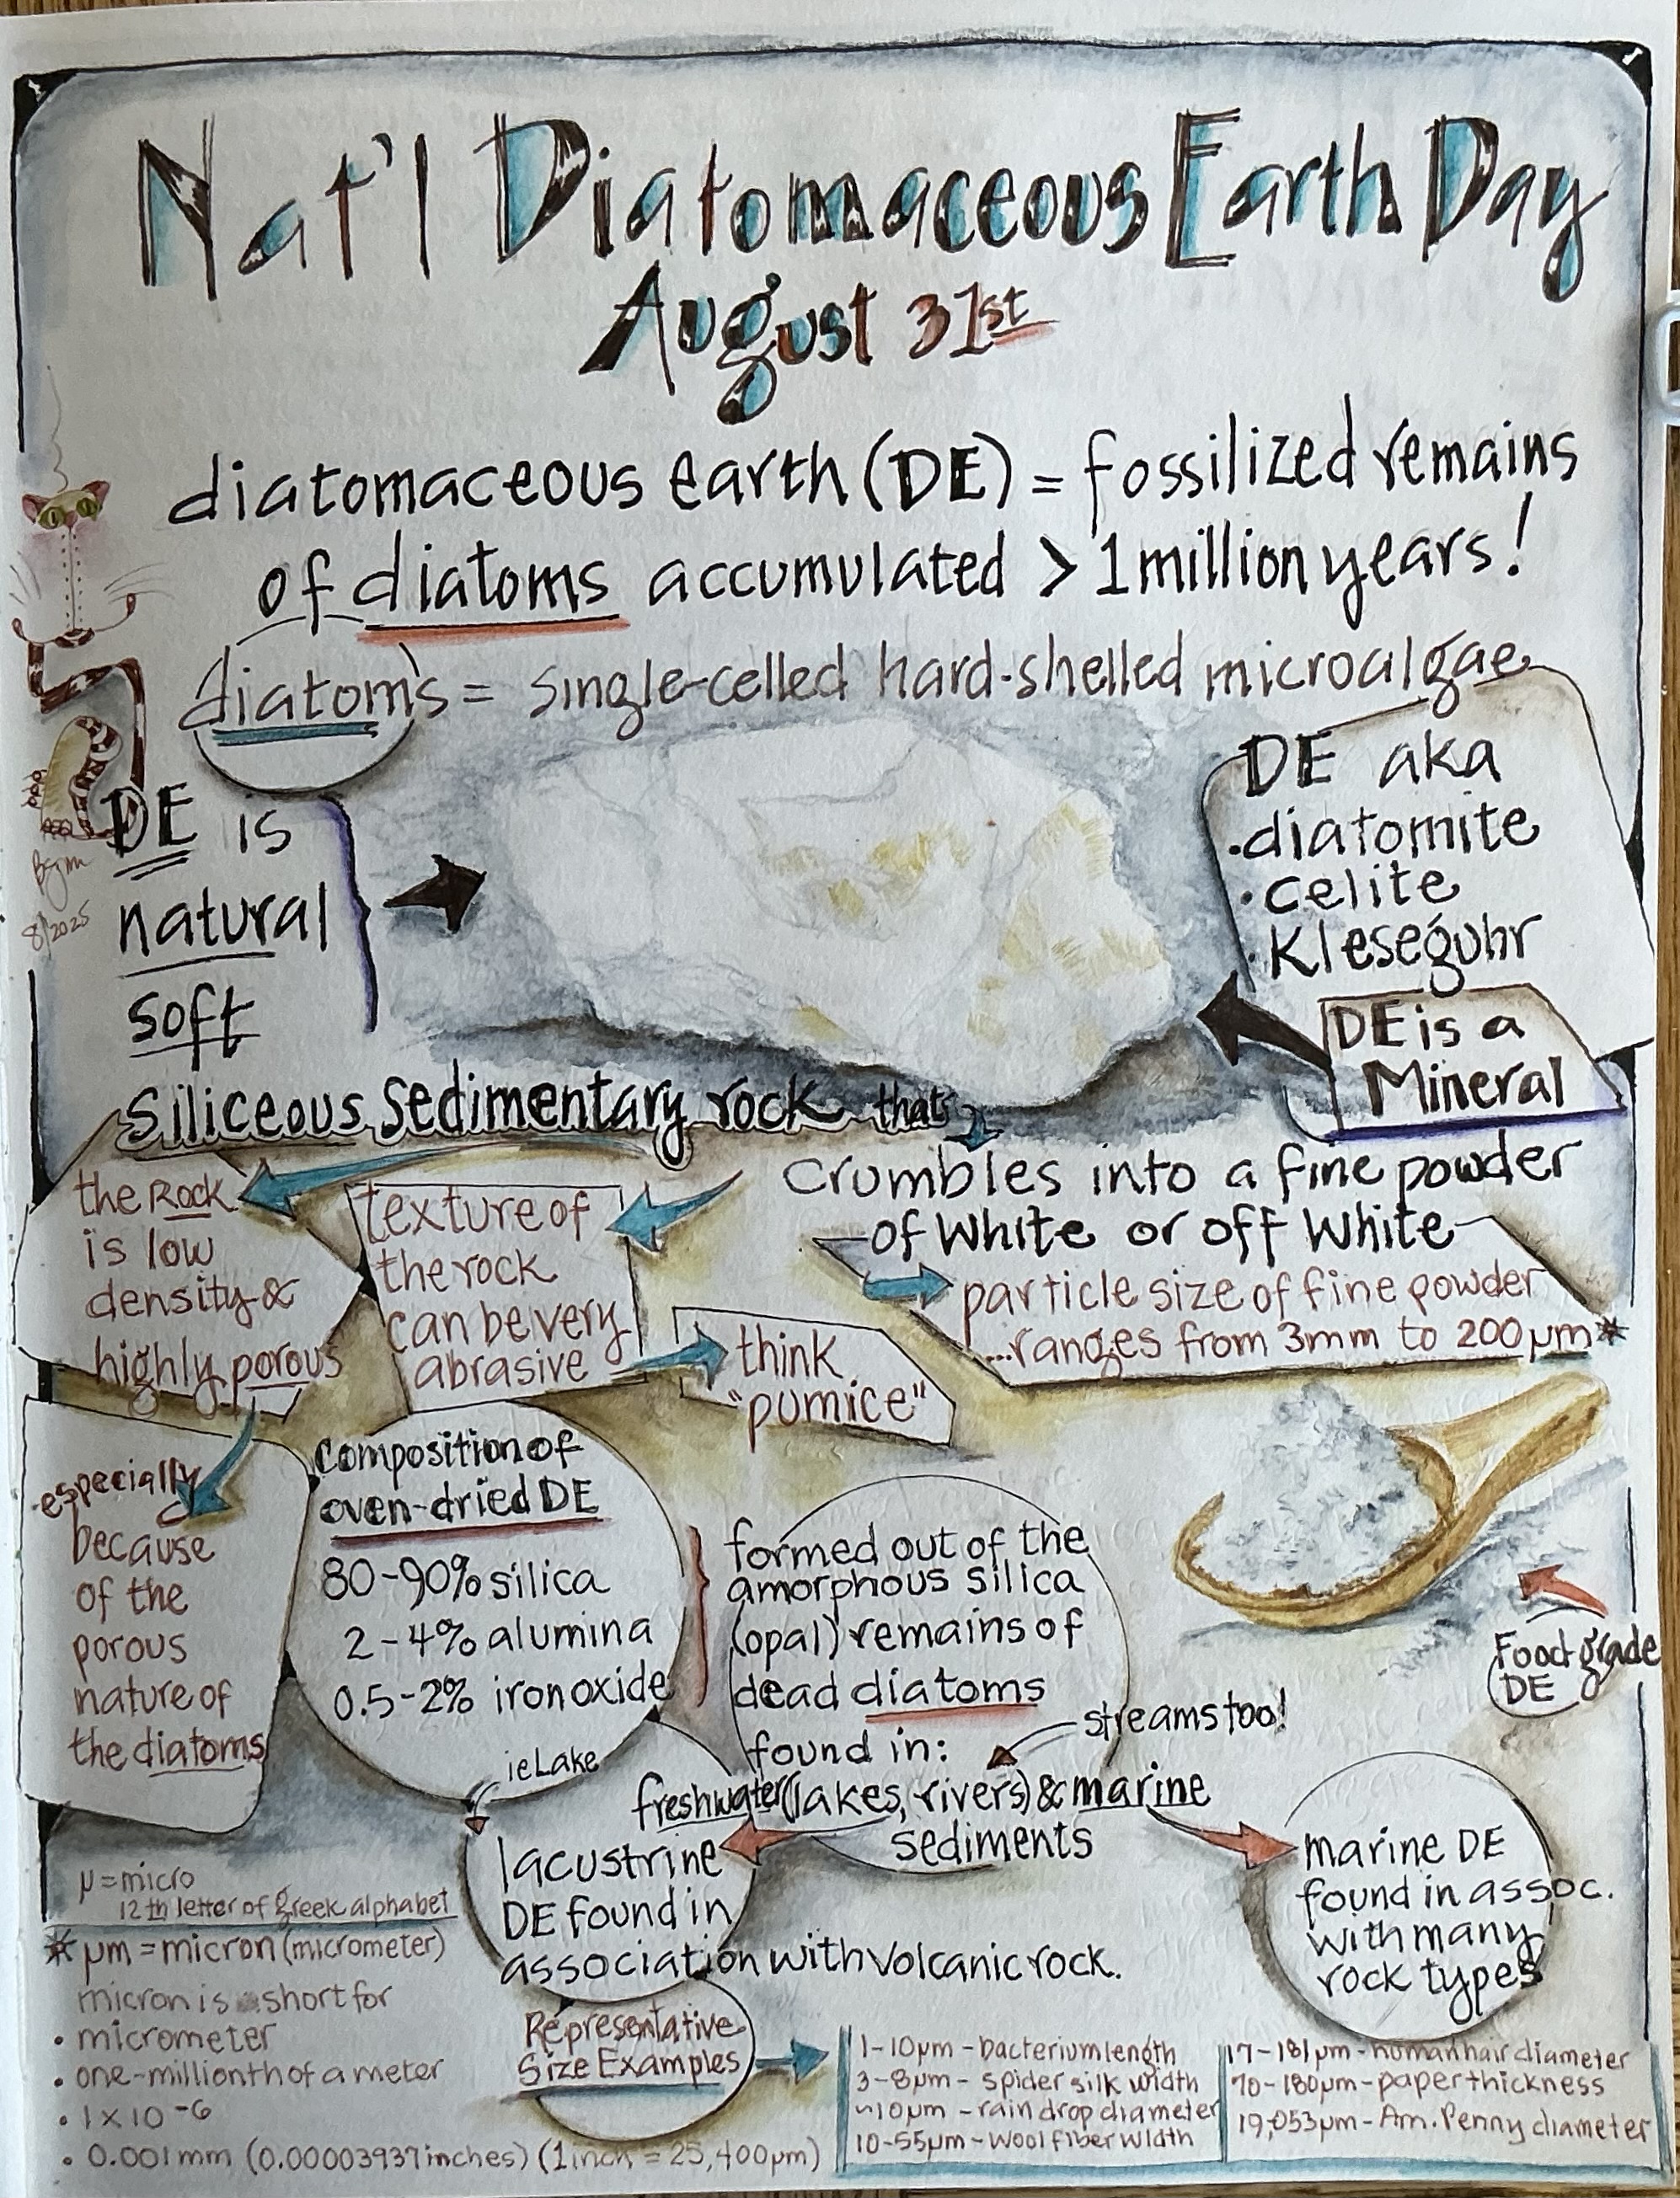 Nat'l Diatomaceous Earth Day
August 31st
diatomaceous earth (DE) = fossilized remains
of diatoms accumulated > 1 million years!
diatoms = single-celled hard-shelled microalgae
DE is
natural
soft
8/2025
DE aka
• diatomite
• celite
• Kleseguhr
DE is a
Mineral
Siliceous Sedimentary rock that
Crumbles into a fine powder
of white or off white
particle size of fine powder
...ranges from 3mm to 200µm*
the Rock
is low
density &
highly porous
texture of
the rock
can be very
abrasive
think
"pumice"
especially
because
of the
porous
nature of
the diatoms
Composition of
oven-dried DE
80-90% silica
2-4% alumina
0.5-2% iron oxide
formed out of the
amorphous silica
(opal) remains of
dead diatoms
found in:
streams too!
freshwater (lakes, rivers) & marine
sediments
Food grade
DE
ie Lake
lacustrine
DE found in
association with volcanic rock.
marine DE
found in assoc.
with many
rock types
µ = micro
12th letter of greek alphabet
* µm = micron (micrometer)
micron is short for
• micrometer
• one-millionth of a meter
• 1 x 10 -6
• 0.001 mm (0.00003937 inches) (1 inch = 25,400µm)
Representative
Size Examples
1-10µm - bacterium length
3-8µm - spider silk width
~10µm - rain drop diameter
10-55µm - wool fiber width
17-181µm - human hair diameter
70-180µm - paper thickness
19,053µm - Am. Penny diameter